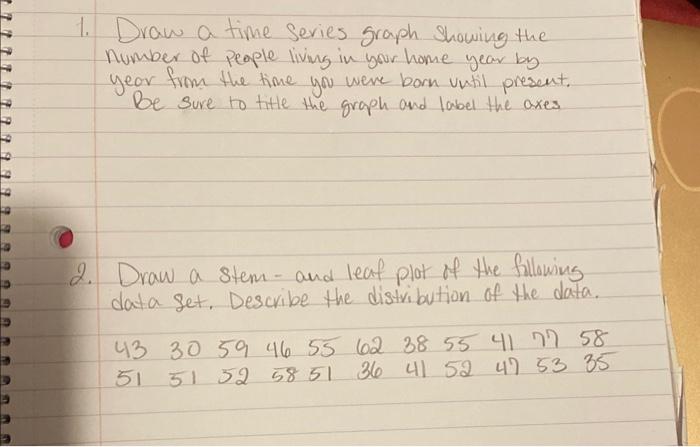 1. Draw a time series graph showing the
number of people living in your home year by
year from the time you were born until present.
Be sure to title the graph and label the axes
2. Draw a stem- and leaf plot of the following
data set. Describe the distribution of the data.
43 30 59 46 55 62 38 55 41 77 58
51 51 52 58 51 36 41 52 47 53 35